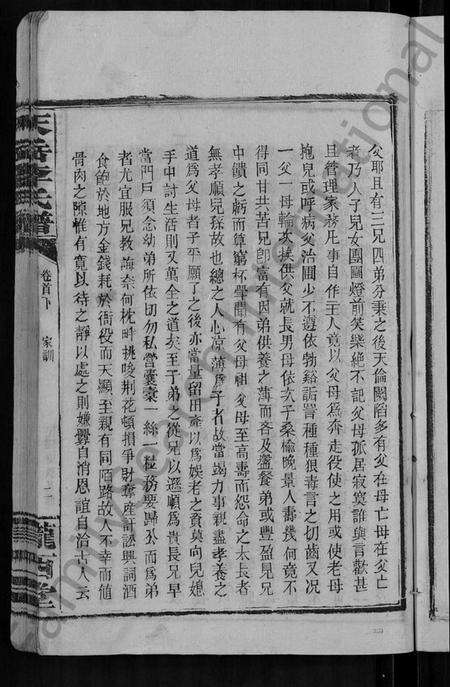 父耶且有三兄四弟分爨之後天倫闕陷多有父在母亡母在父亡
者乃人子兒女團圞燈前笑樂絶不記父母孤居寂寞誰與言歡甚
且管理家務凡事自作主人竟以父母為奔走役使之用或使老母
抱兒或呼病父治圃少不遵依勃谿詬詈種種狠毒言之切齒又况
一父一母輪次挨供父就長男母依次子桑榆晚景人壽幾何竟不
得同甘共苦兄即富有因弟供養之薄而吝及盤餐弟或豐盈見兄
中饋之虧而算窮杯斝間有父母祖父母至高壽而怨命之太長者
無孝順兒孫故也總之人心凉薄為子者故當竭力事親盡孝養之
道為父母者子平願了之後亦當量留田產以為娱老之資莫向兒媳
手中討生活則又萬全之道矣至于弟之從兄以遜順為貴長兄早
當門戶須念幼弟所依切勿私營囊橐一絲一粒務要歸公而為弟
者尤宜服兄教誨奈何枕畔挑唆荆花頓損爭財奪產計訟興詞酒
食飽於地方金錢耗於衙役而天顯至親有同陌路故人不幸而值
骨肉之隙惟有寬以待之靜以處之則嫌釁自消恩誼自洽古人云
天岳李氏譜
卷首下
家訓
二
隴西堂